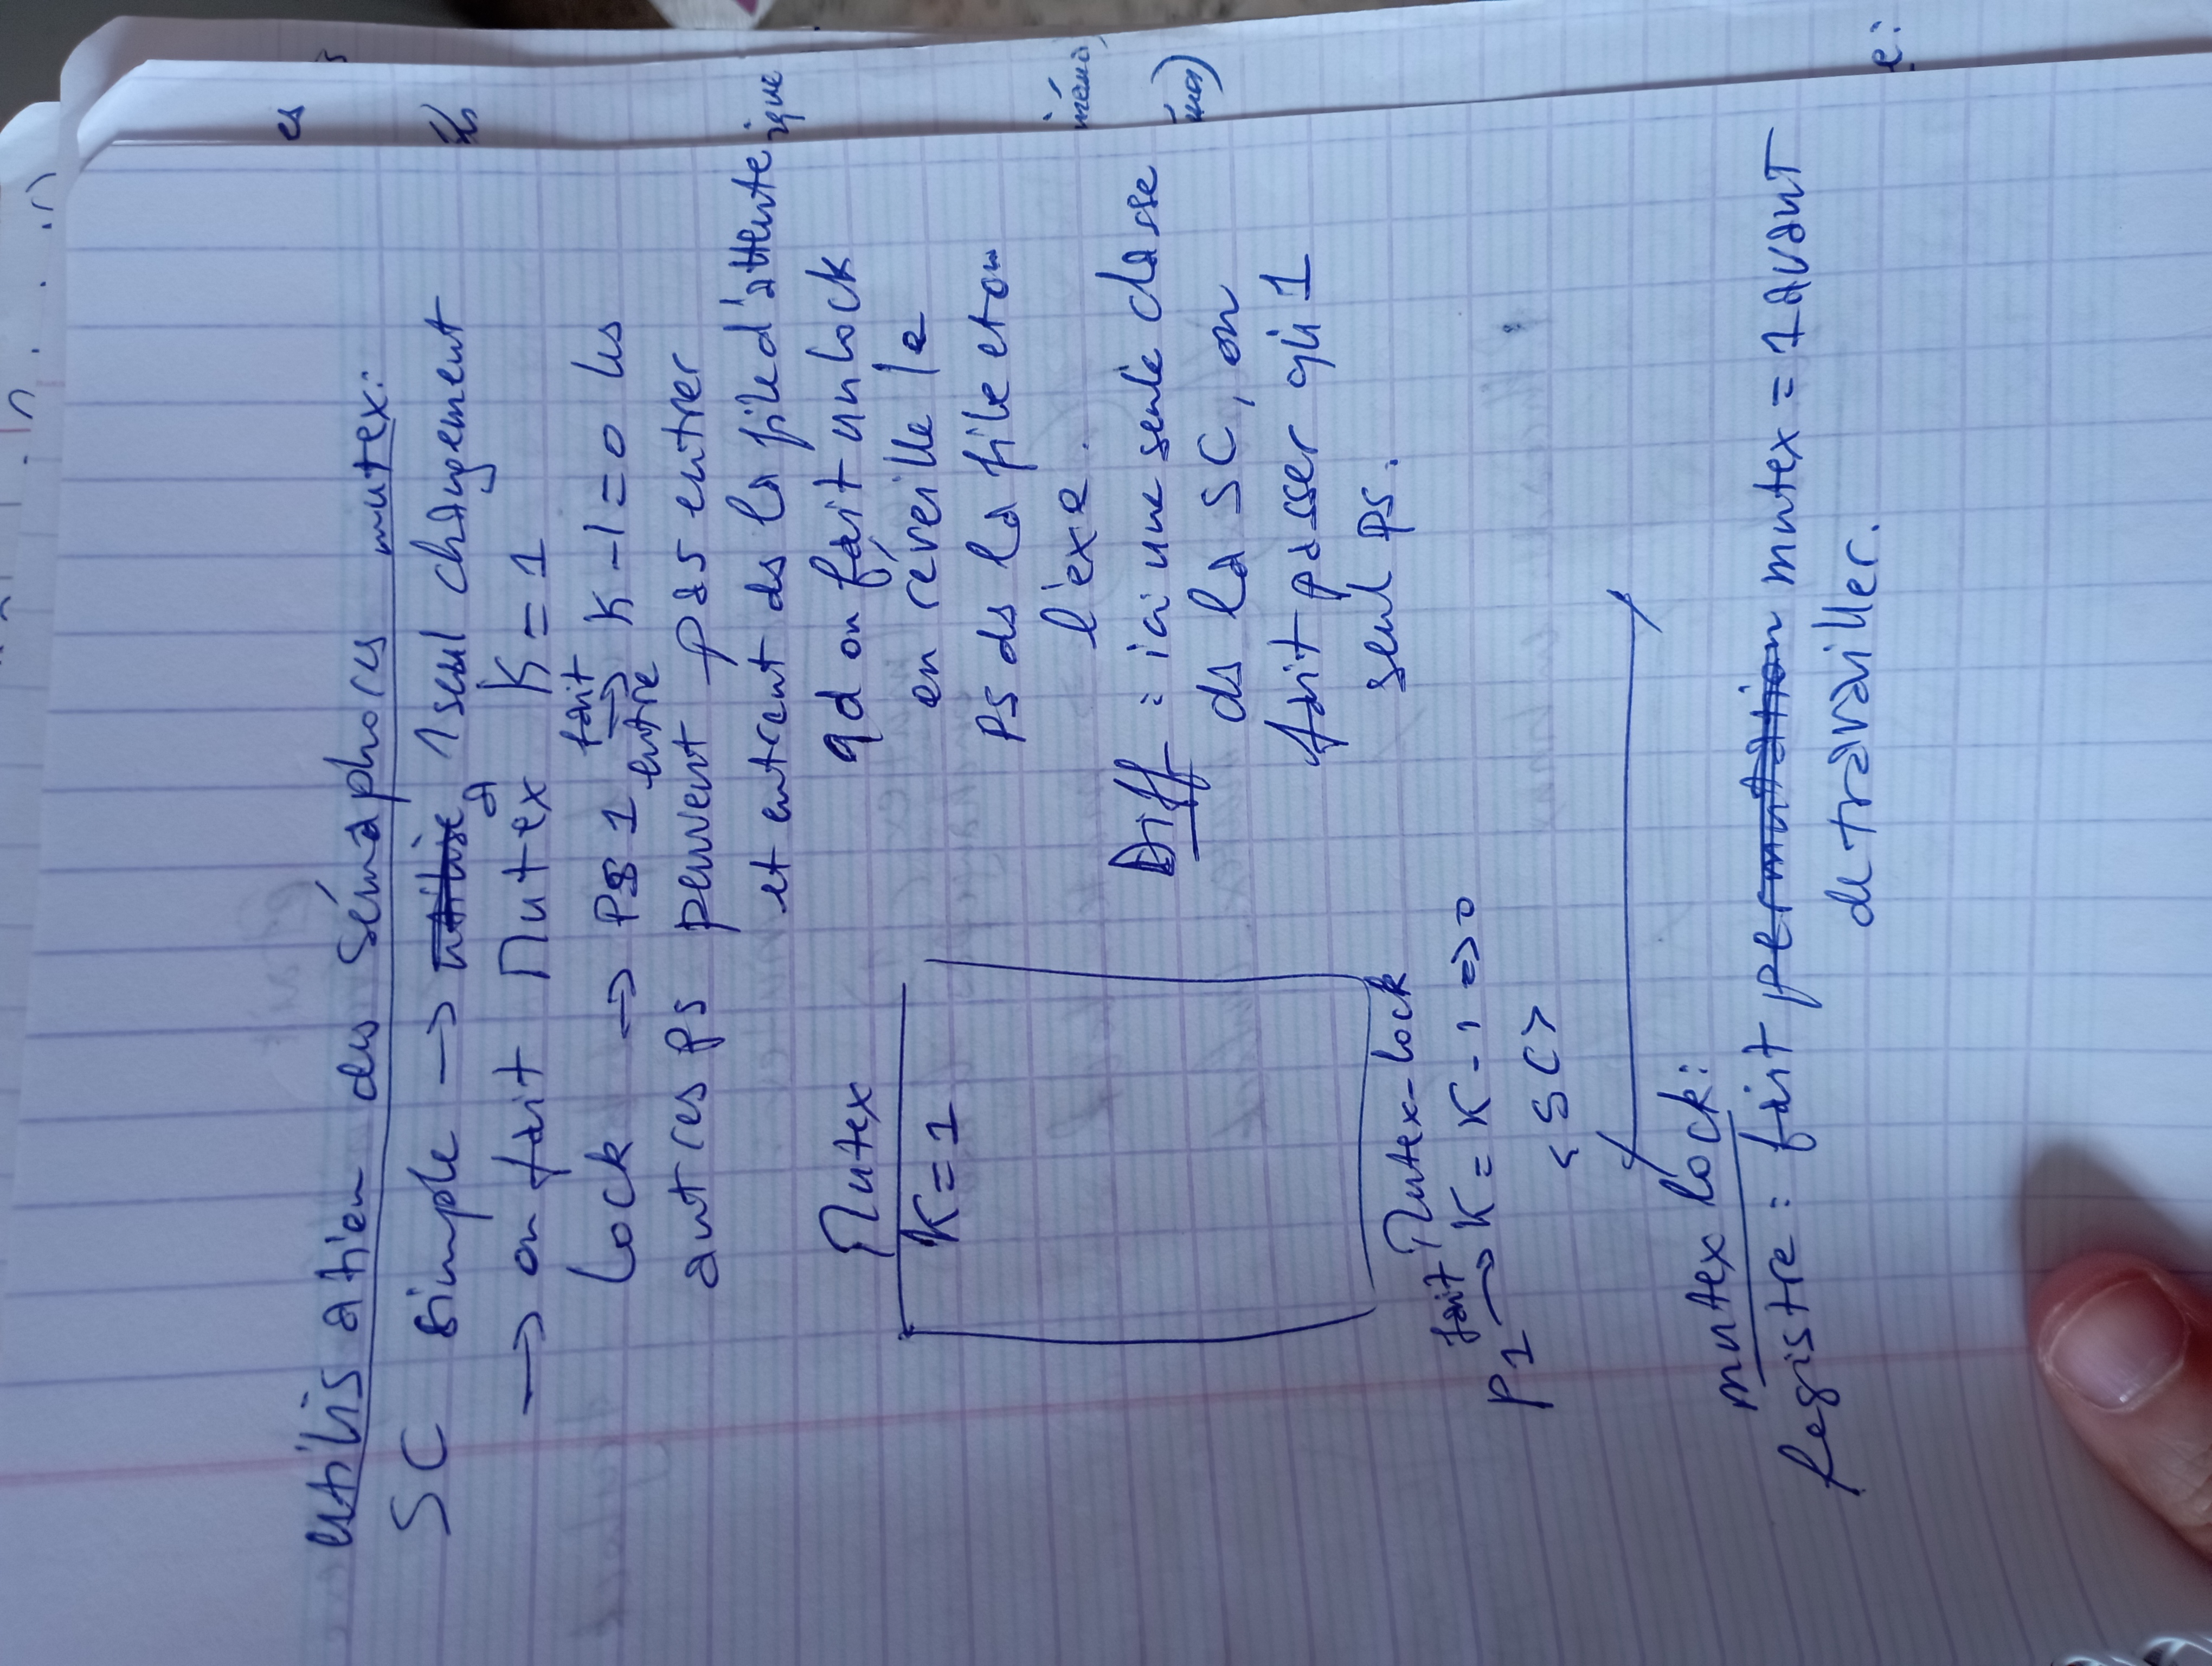 utilisation des Sémaphores mutex:
SC simple → utilise 1 seul changement
→ on fait Mutex à K = 1
fait
Lock → Ps 1 → K - 1 = 0 les
entre
autres ps peuvent pas entrer
et entrent ds la file d'attente
qd on fait unlock
on réveille le
ps ds la file et on
l'exe.
Mutex
K = 1
Diff : ici une seule classe
ds la SC, on
fait passer qu'1
seul ps.
Mutex-lock
P1 fait → K = K - 1 => 0
< SC >
mutex lock:
Registre : fait permutation mutex = 1 avant
de travailler.
es
ds
ique
e: